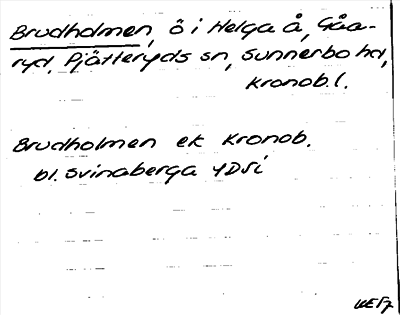 Brudholmen, ö i Helga å, Gåa-
ryd, Pjätteryds sn, Sunnerbo hd,
Kronob. l.
Brudholmen ek Kronob.
bl. Svinaberga YDSi